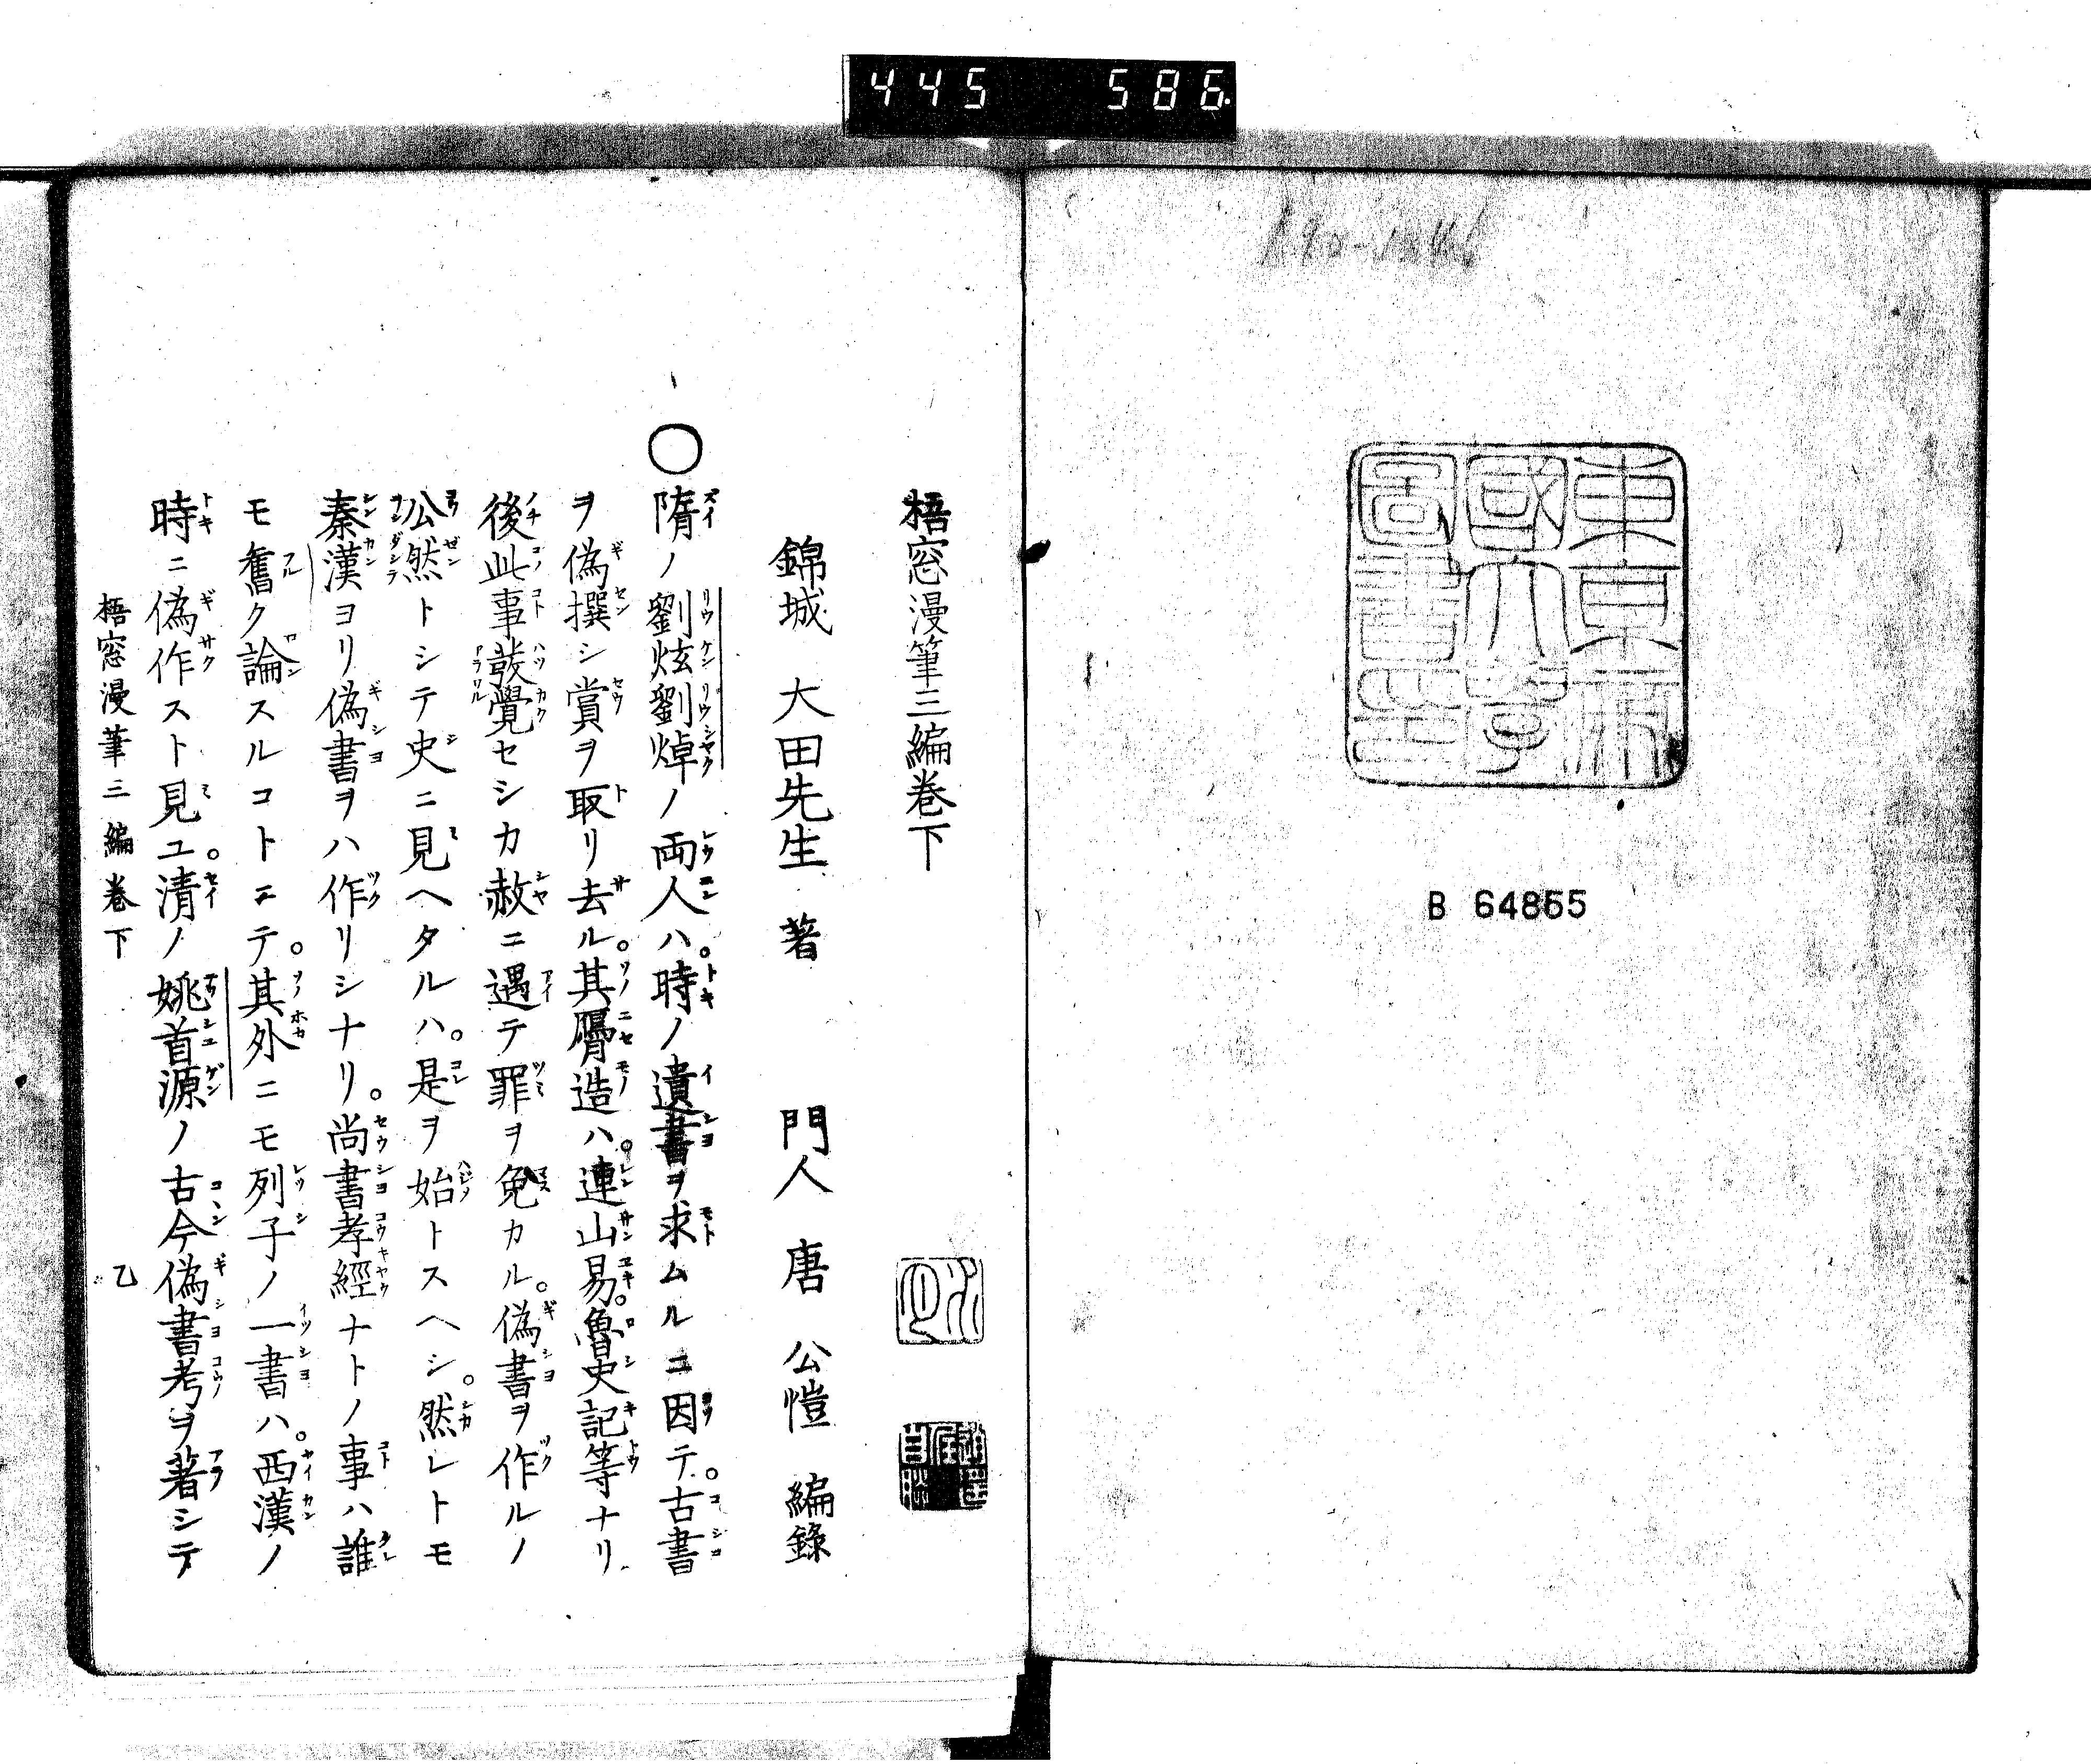 445 586
東京帝
國大學
圖書印
B 64865
梧窓漫筆三編巻下
錦城 大田先生 著 門人 唐 公愷 編錄
○隋ノ劉炫劉焯ノ両人ハ。時ノ遺書ヲ求ムルニ因テ。古書
ヲ偽撰シ賞ヲ取リ去ル。其贋造ハ。連山易。魯史記等ナリ
後此事發覺セシカ赦ニ遇テ罪ヲ免カル。偽書ヲ作ルノ
公然トシテ史ニ見ヘタルハ。是ヲ始トスヘシ。然レトモ
秦漢ヨリ偽書ヲハ作リシナリ。尚書孝經ナトノ事ハ誰
モ舊ク論スルコトニテ。其外ニモ列子ノ一書ハ。西漢ノ
時ニ偽作スト見ユ。清ノ姚首源ノ古今偽書考ヲ著シテ
梧窓漫筆三編巻下 乙